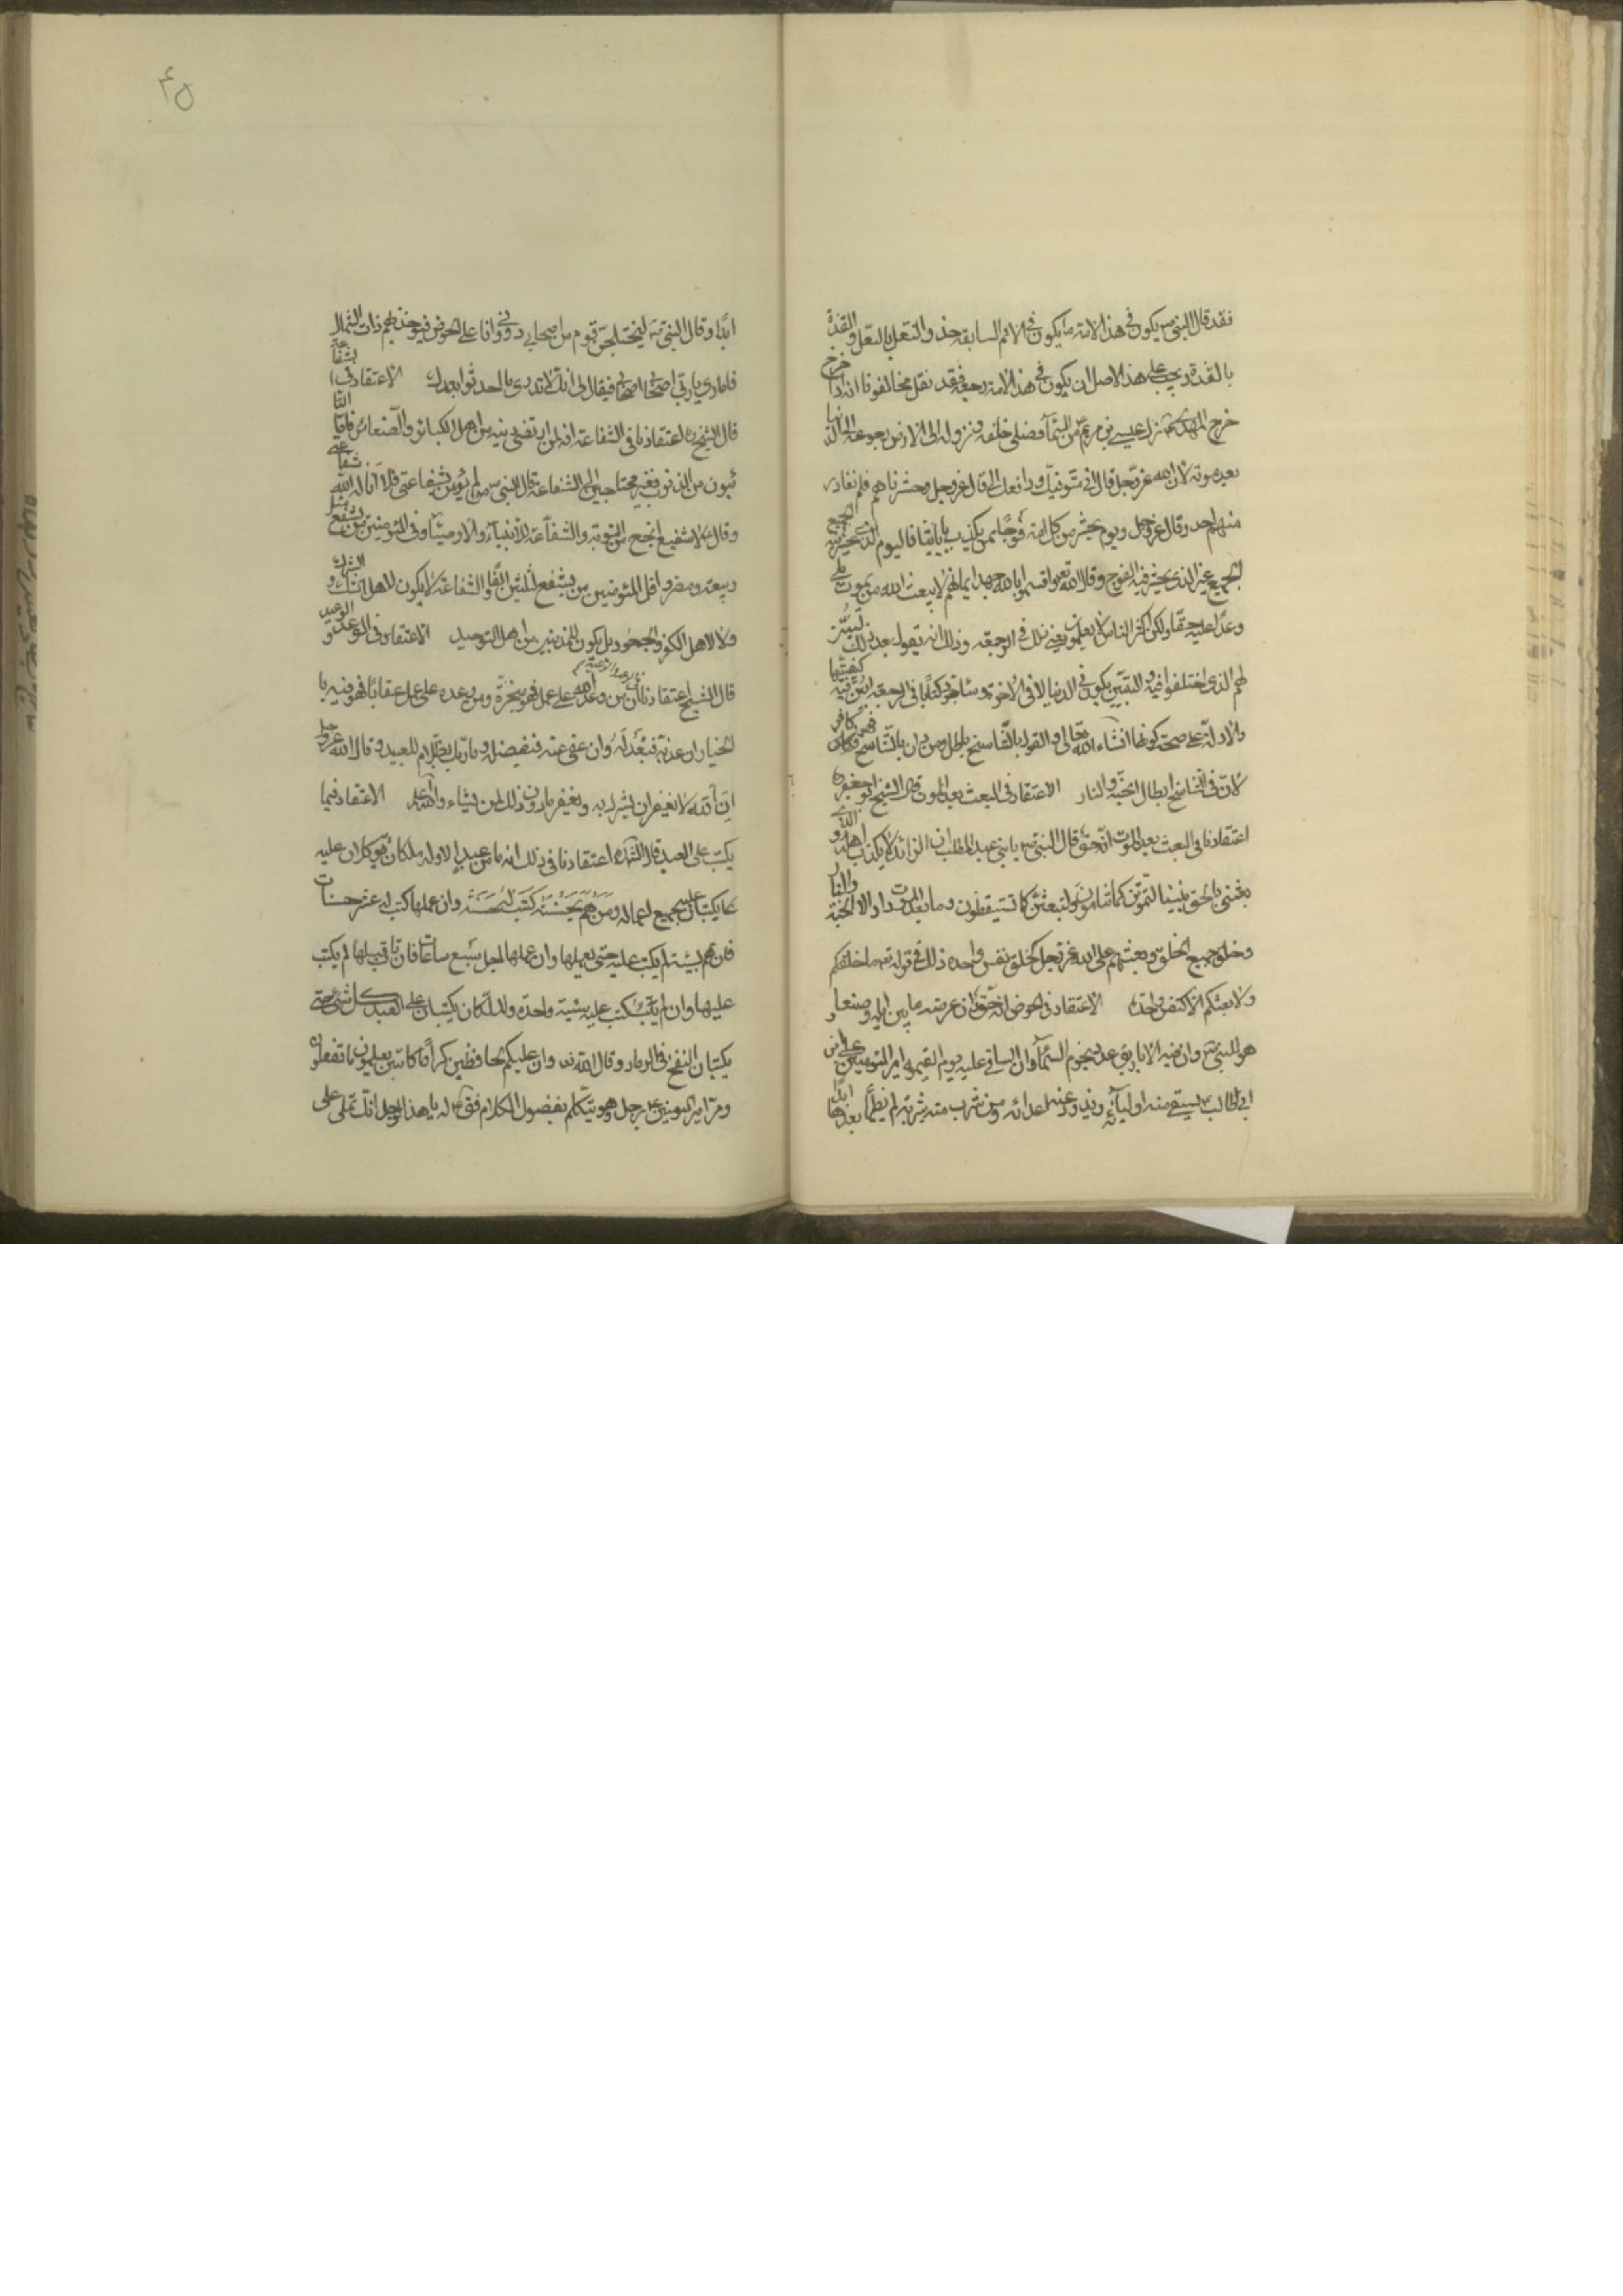 فقد قال النبي ص يكون في هذه الامة ما يكون في الامم السابقة حذو النعل بالنعل والقذة
بالقذة ويجب على هذا الاصل ان يكون في هذه الامة رجعة فقد نقل مخالفونا انه اذا خرج
خرج المهدى ع نزل عيسى بن مريم من السمآ فصلى خلفه ونزوله الى الارض رجوعه الى الدنيا
بعد موته لان الله عز وجل قال انى متوفيك ورافعك الى وقال عز وجل وحشرناهم فلم نغادر
منهم احد وقال عز وجل ويوم نحشر من كل امة فوجا ممن يكذب باياتنا فاليوم الذى يحشر فيه الجميع
الجميع غير الذى يحشر فيه الفوج وقال الله تعه واقسموا بالله جهد ايمانهم لا يبعث الله من يموت بلى
وعدا عليه حقا ولكن اكثر الناس لا يعلمون يعنى ذلك فى الرجعة وذلك انه يقول بعد ذلك ليبين
لهم الذى اختلفوا فيه والتبيين يكون فى الدنيا لا فى الاخرة وساجرد كتابا فى الرجعة ابين فيه كيفيتها
والادلة على صحة كونها انشاء الله تعالى والقول بالتناسخ باطل ومن دان بالتناسخ فهو كافر
لان فى التناسخ ابطال الجنة والنار الاعتقاد فى البعث بعد الموت قال الشيخ ابو جعفر ره
اعتقادنا فى البعث بعد الموت انه حق قال النبى ص يا بنى عبد المطلب ان الرائد لا يكذب اهله والذى
بعثنى بالحق نبيا لتموتن كما تنامون ولتبعثن كما تستيقظون وما بعد الموت دار الا الجنة والنار
وخلق جميع الخلق وبعثهم على الله عز وجل كخلق نفس واحده ذلك فى قوله تعه ما خلقكم
ولا بعثكم الا كنفس واحدة الاعتقاد فى الحوض انه حق وان عرضه ما بين ايله وصنعا و
هو للنبى ص وان فيه الاباريق عدد نجوم السمآ وان الساقى عليه يوم القيمه امير المؤمنين على بن
ابى طالب ع يسقى منه اوليآئه ويذود عنه اعدائه ومن شرب منه شربة لم يظمأ بعدها ابدا
ابدًا وقال النبى ص ليختلجن قوم من اصحابى دونى وانا على الحوض فيوخذ بهم ذات الشمال
فانادى يا رب اصحابى اصحابى فيقال لى انك لا تدرى ما احدثوا بعدك الاعتقاد فى الشفاعة
قال الشيخ ره اعتقادنا فى الشفاعة انها لمن ارتضى دينه من اهل الكبائر والصغائر فاما التا
ئبون من الذنوب فغير محتاجين الى الشفاعة قال النبى ص من لم يؤمن بشفاعتى فلا اناله الله شفاعتى
وقال ع لا شفيع انجح من التوبة والشفاعة للانبيآء والاوصيآء وفى المؤمنين من يشفع مثل
ربيعة ومضر واقل المؤمنين من يشفع لثلثين الفًا والشفاعة لا يكون لاهل الشك والشرك
ولا لاهل الكفر والجحود بل يكون للمذنبين من اهل التوحيد الاعتقاد فى الوعد و الوعيد
قال الشيخ اعتقادنا ان من وعد الله على عمل فهو منجزه ومن وعده على عمل عقابا فهو فيه با
لخيار ان عذبه فبعدله وان عفى عنه فبفضله وما ربك بظلام للعبيد وقال الله عز وجل
ان الله لا يغفر ان يشرك به ويغفر ما دون ذلك لمن يشاء والله اعلم الاعتقاد فيما
يكتب على العبد قال الشيخ ره اعتقادنا فى ذلك انه ما من عبد الا وله ملكان موكلان عليه
يكتبان عليه جميع اعماله ومن هم بحسنة كتب له حسنة وان عملها كتب له عشر حسنات
فان هم بسيئة لم يكتب عليه حتى يعملها وان عملها اجل سبع ساعات فان تاب قبلها لم يكتب
عليها وان لم يتب كتب عليه سيئة واحدة والملكان يكتبان على العبد كل شئ حتى
يكتبان النفخ فى الرماد وقال الله تعه وان عليكم لحافظين كراما كاتبين يعلمون ما تفعلون
ومر امير المومنين ع برجل وهو يتكلم بفضول الكلام فقال له يا هذا الرجل انك تملى على